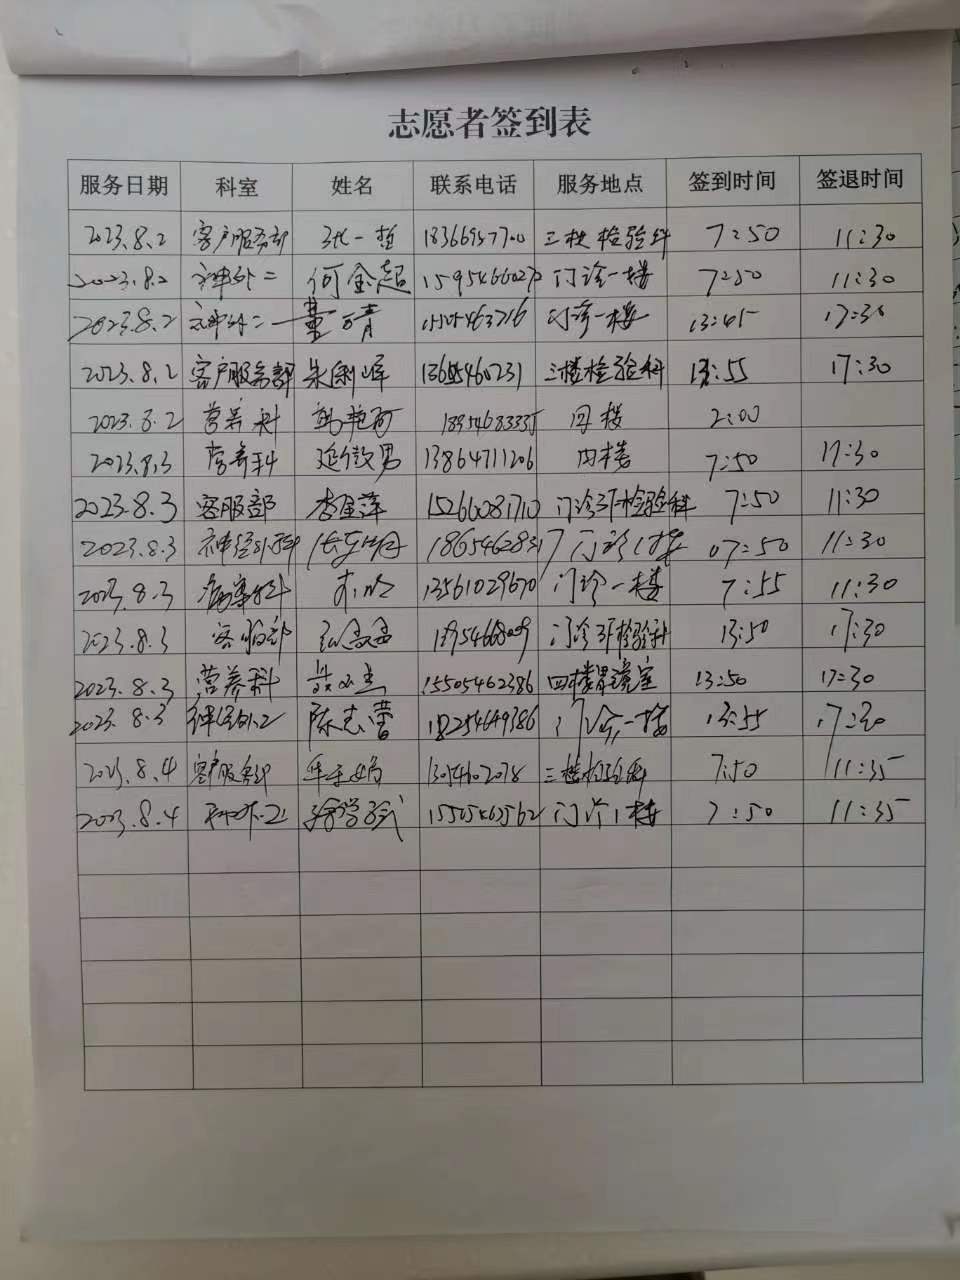 志愿者签到表
服务日期 科室 姓名 联系电话 服务地点 签到时间 签退时间
2023.8.2 客户服务部 张一哲 18366957700 三楼检验科 7:50 11:30
2023.8.2 神外二 何金超 门诊一楼 7:50 11:30
2023.8.2 神外二 董青 15505463716 门诊一楼 13:45 17:30
2023.8.2 客户服务部 13:55 三楼检验科 17:30
2023.8.2 营养科 18954683335 四楼 2:00
2023.8.3 营养科 延微男 13864711206 四楼 7:50 17:30
2023.8.3 客服部 李金萍 15266081710 门诊3F检验科 7:50 11:30
2023.8.3 神经外科 18654628317 门诊1楼 07:50 11:30
2023.8.3 13561029670 门诊一楼 7:55 11:30
2023.8.3 客服部 门诊3F检验科 13:50 17:30
2023.8.3 营养科 15505462386 四楼胃镜室 13:50 17:30
2023.8.3 神经外2 陈志蕾 18254649386 门诊一楼 13:55 17:30
2023.8.4 客户服务部 三楼检验科 7:50 11:35
2023.8.4 15505463562 门诊1楼 7:50 11:35